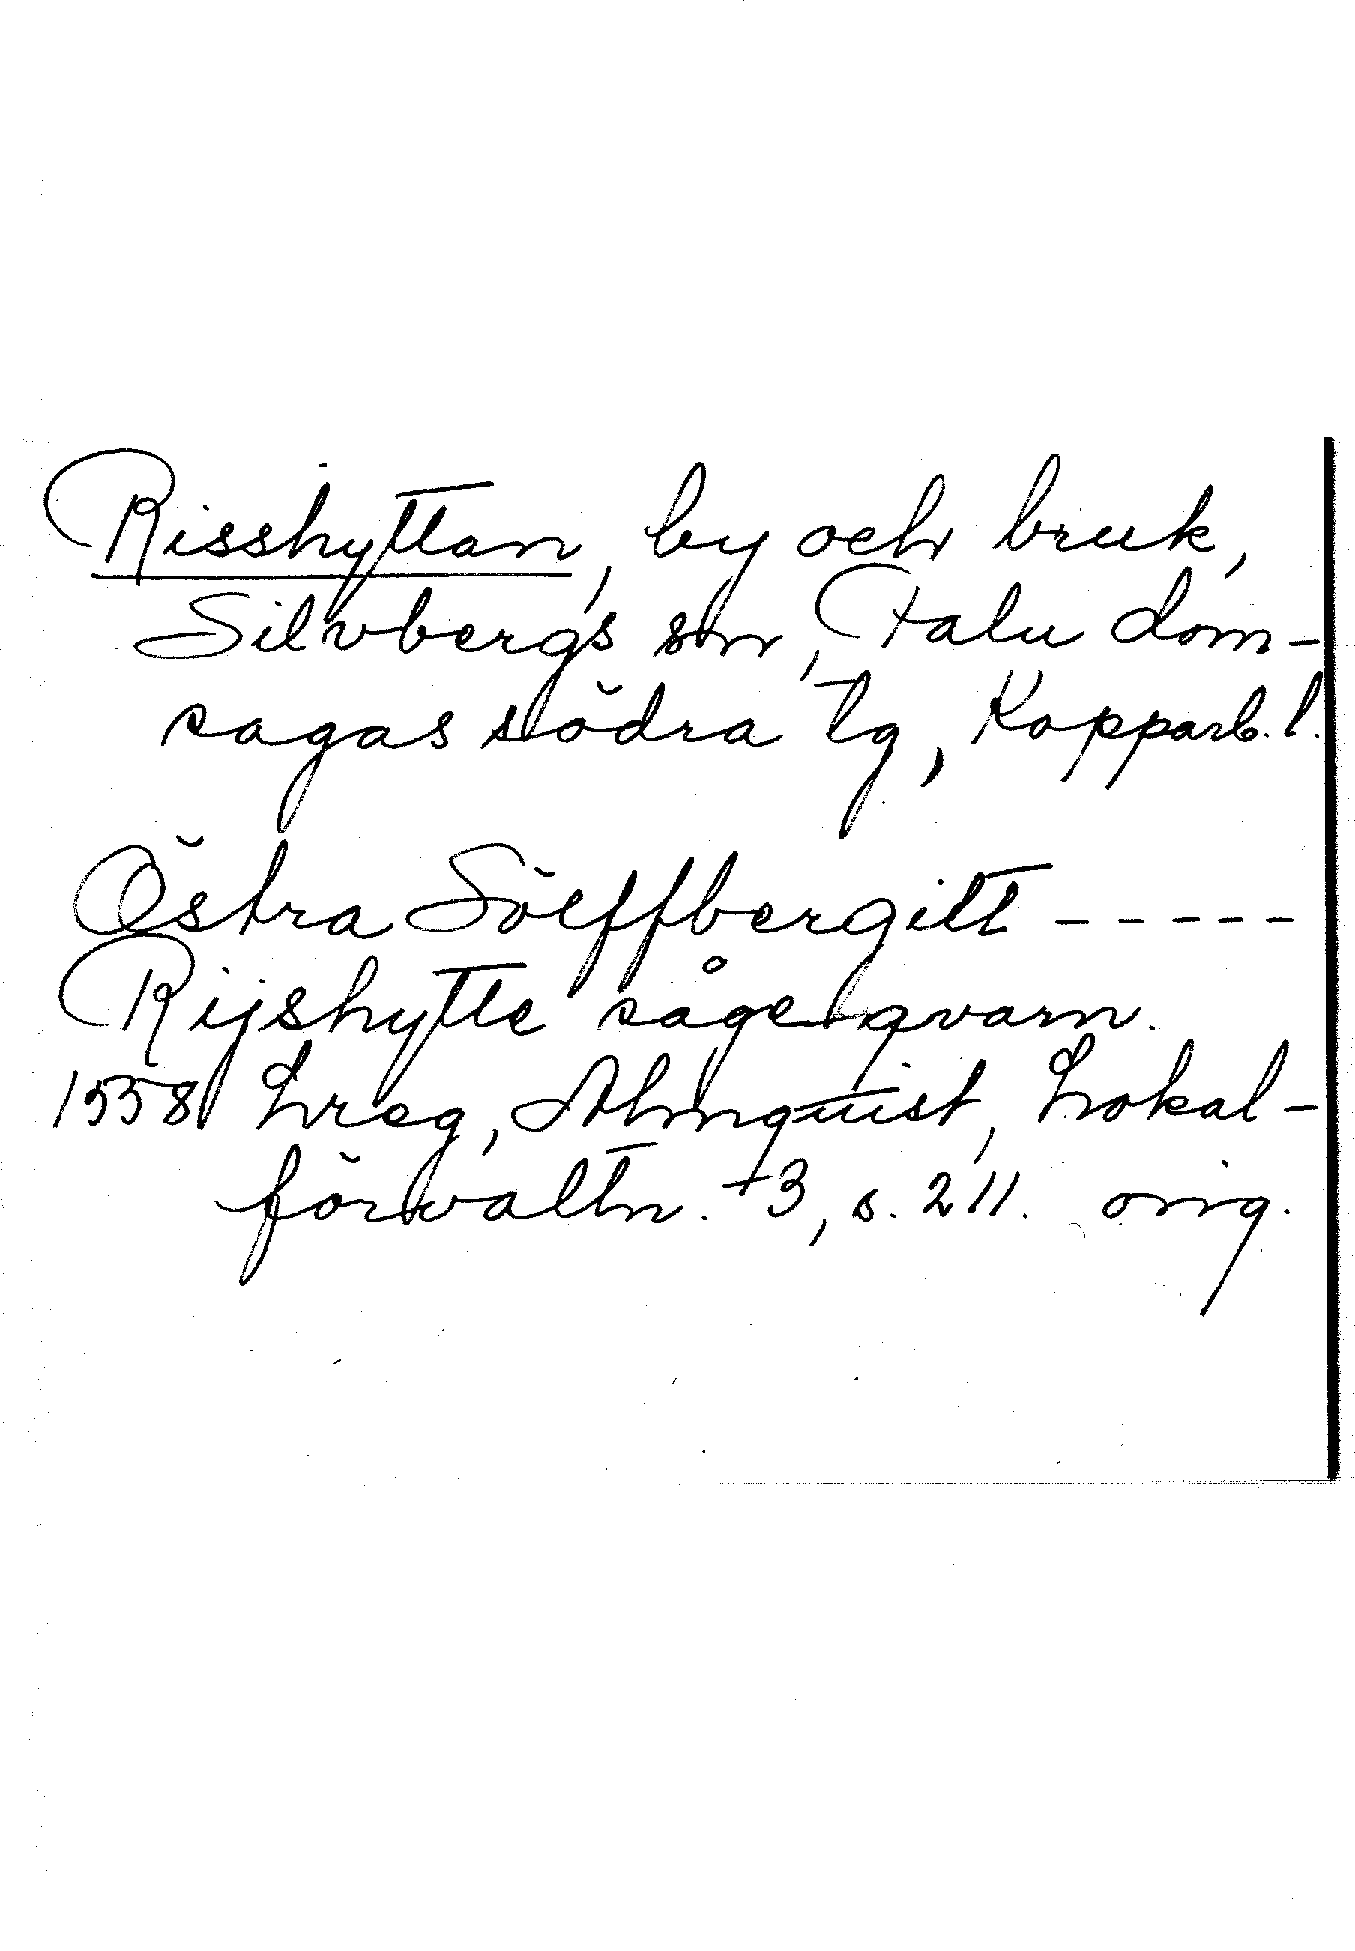 Risshyttan, by och bruk,
Silvbergs sn, Falu dom-
sagas södra tg, Kopparb. l.
Östra Sölffbergitt -----
Rijshytte såge qvarn.
1558 Lreg, Almquist, Lokal-
förvaltn. +3, s. 211. orig.